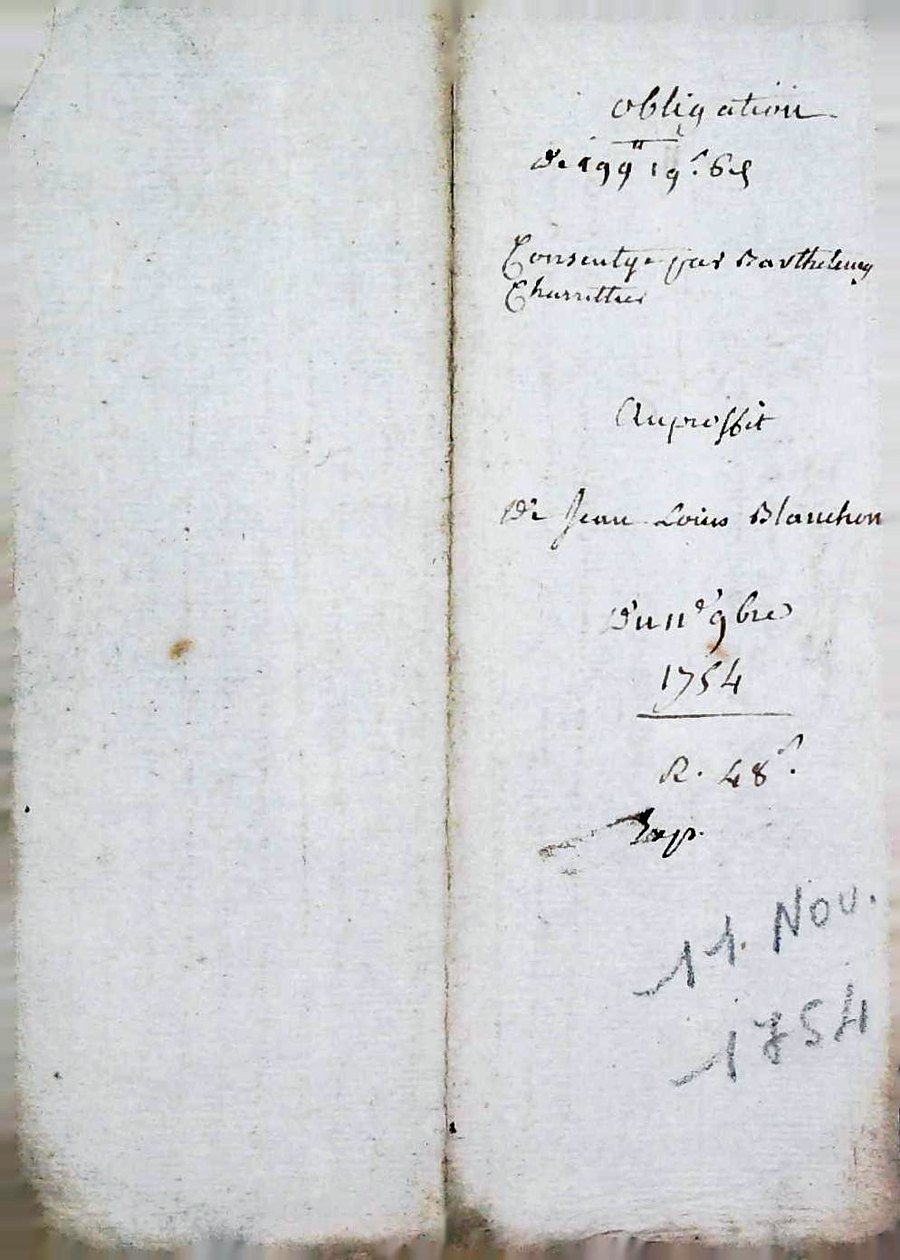 obligation
de 199lt 19s 6d
Consentye par Barthelemy
Charretier
Au proffit
De Jean Louis Blanchon
Du 11e 9bre
1754
R. 48s.
Exp.
11. Nov.
1754